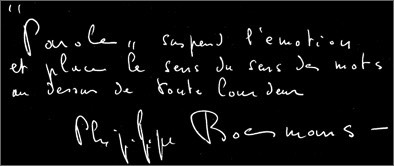 "Parole" suspend l'émotion
et place le sens du sens des mots
au dessus de toute lourdeur
Philippe Boesmans -